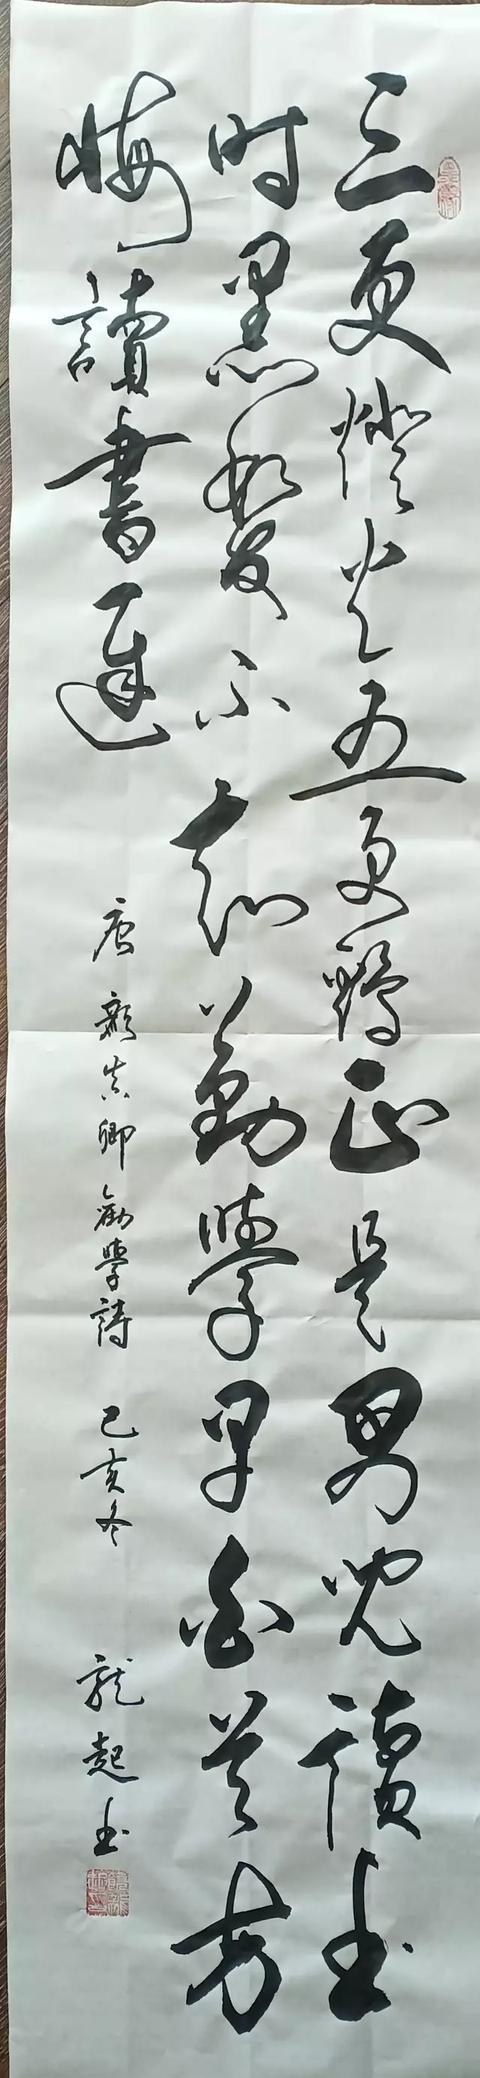 三更燈火五更鷄正是男兒讀書
时黑髮不知勤學早白首方
悔讀書遲
唐顏真卿勸學詩 己亥冬 龍起書